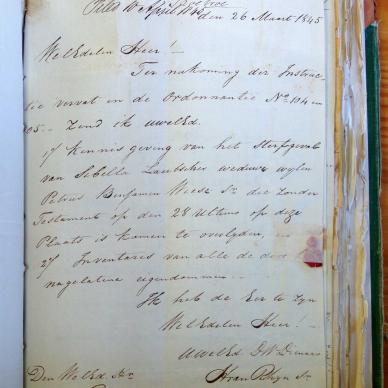 den 26 Maart 1845
WelEdelen Heer!
Ter nakoming der Instruc-
tie vervat in de Ordonnantie No. 104 en
105 - Zend ik uwelEd.
1/ Kennisgeving van het Sterfgeval
van Sibella Laubscher weduwe wylen
Petrus Benjamin Wiese Sr die zonder
Testament op den 28 Ultimo op deze
Plaats is komen te overlyden, en
2/ Inventaris van alle de door
nagelatene eigendommen -
Ik heb de Eer te Zyn
WelEdelen Heer! -
uwelEd
Den WelEd